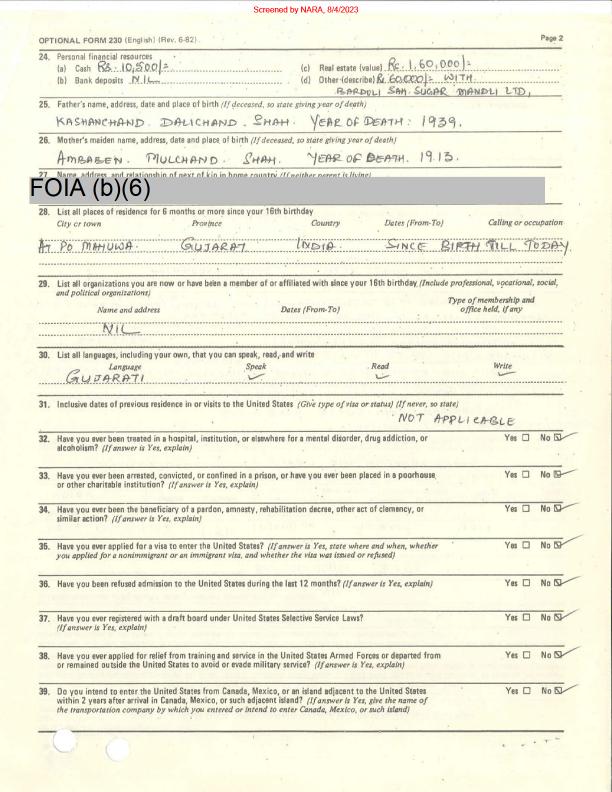 Screened by NARA, 8/4/2023
OPTIONAL FORM 230 (English) (Rev. 6-82) Page 2
24. Personal financial resources
(a) Cash Rs. 10,500/= (c) Real estate (value) Rs. 1,60,000/=
(b) Bank deposits NIL (d) Other (describe) Rs 60000/= WITH
BARDOLI SAH. SUGAR MANDLI LTD,
25. Father's name, address, date and place of birth (If deceased, so state giving year of death)
KASHANCHAND. DALICHAND. SHAH. YEAR OF DEATH: 1939.
26. Mother's maiden name, address, date and place of birth (If deceased, so state giving year of death)
AMBABEN. MULCHAND. SHAH. YEAR OF DEATH. 1913.
27. Name, address, and relationship of next of kin in home country (If neither parent is living)
FOIA (b)(6)
28. List all places of residence for 6 months or more since your 16th birthday
City or town Province Country Dates (From-To) Calling or occupation
AT PO MAHUWA. GUJARAT INDIA. SINCE BIRTH TILL TODAY
29. List all organizations you are now or have been a member of or affiliated with since your 16th birthday (Include professional, vocational, social,
and political organizations)
Name and address Dates (From-To) Type of membership and
office held, if any
NIL
30. List all languages, including your own, that you can speak, read, and write
Language Speak Read Write
GUJARATI ✓ ✓ ✓
31. Inclusive dates of previous residence in or visits to the United States (Give type of visa or status) (If never, so state)
NOT APPLICABLE
32. Have you ever been treated in a hospital, institution, or elsewhere for a mental disorder, drug addiction, or Yes ☐ No ☑
alcoholism? (If answer is Yes, explain)
33. Have you ever been arrested, convicted, or confined in a prison, or have you ever been placed in a poorhouse Yes ☐ No ☑
or other charitable institution? (If answer is Yes, explain)
34. Have you ever been the beneficiary of a pardon, amnesty, rehabilitation decree, other act of clemency, or Yes ☐ No ☑
similar action? (If answer is Yes, explain)
35. Have you ever applied for a visa to enter the United States? (If answer is Yes, state where and when, whether Yes ☐ No ☑
you applied for a nonimmigrant or an immigrant visa, and whether the visa was issued or refused)
36. Have you been refused admission to the United States during the last 12 months? (If answer is Yes, explain) Yes ☐ No ☑
37. Have you ever registered with a draft board under United States Selective Service Laws? Yes ☐ No ☑
(If answer is Yes, explain)
38. Have you ever applied for relief from training and service in the United States Armed Forces or departed from Yes ☐ No ☑
or remained outside the United States to avoid or evade military service? (If answer is Yes, explain)
39. Do you intend to enter the United States from Canada, Mexico, or an island adjacent to the United States Yes ☐ No ☑
within 2 years after arrival in Canada, Mexico, or such adjacent island? (If answer is Yes, give the name of
the transportation company by which you entered or intend to enter Canada, Mexico, or such island)